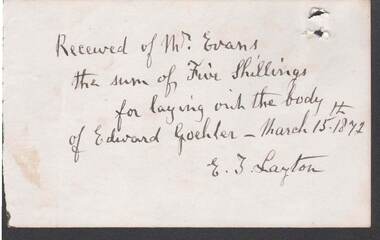 Received of Mr. Evans
the sum of Five Shillings
for laying out the body
of Edward Goehler - March 15th 1872
E. J. Layton